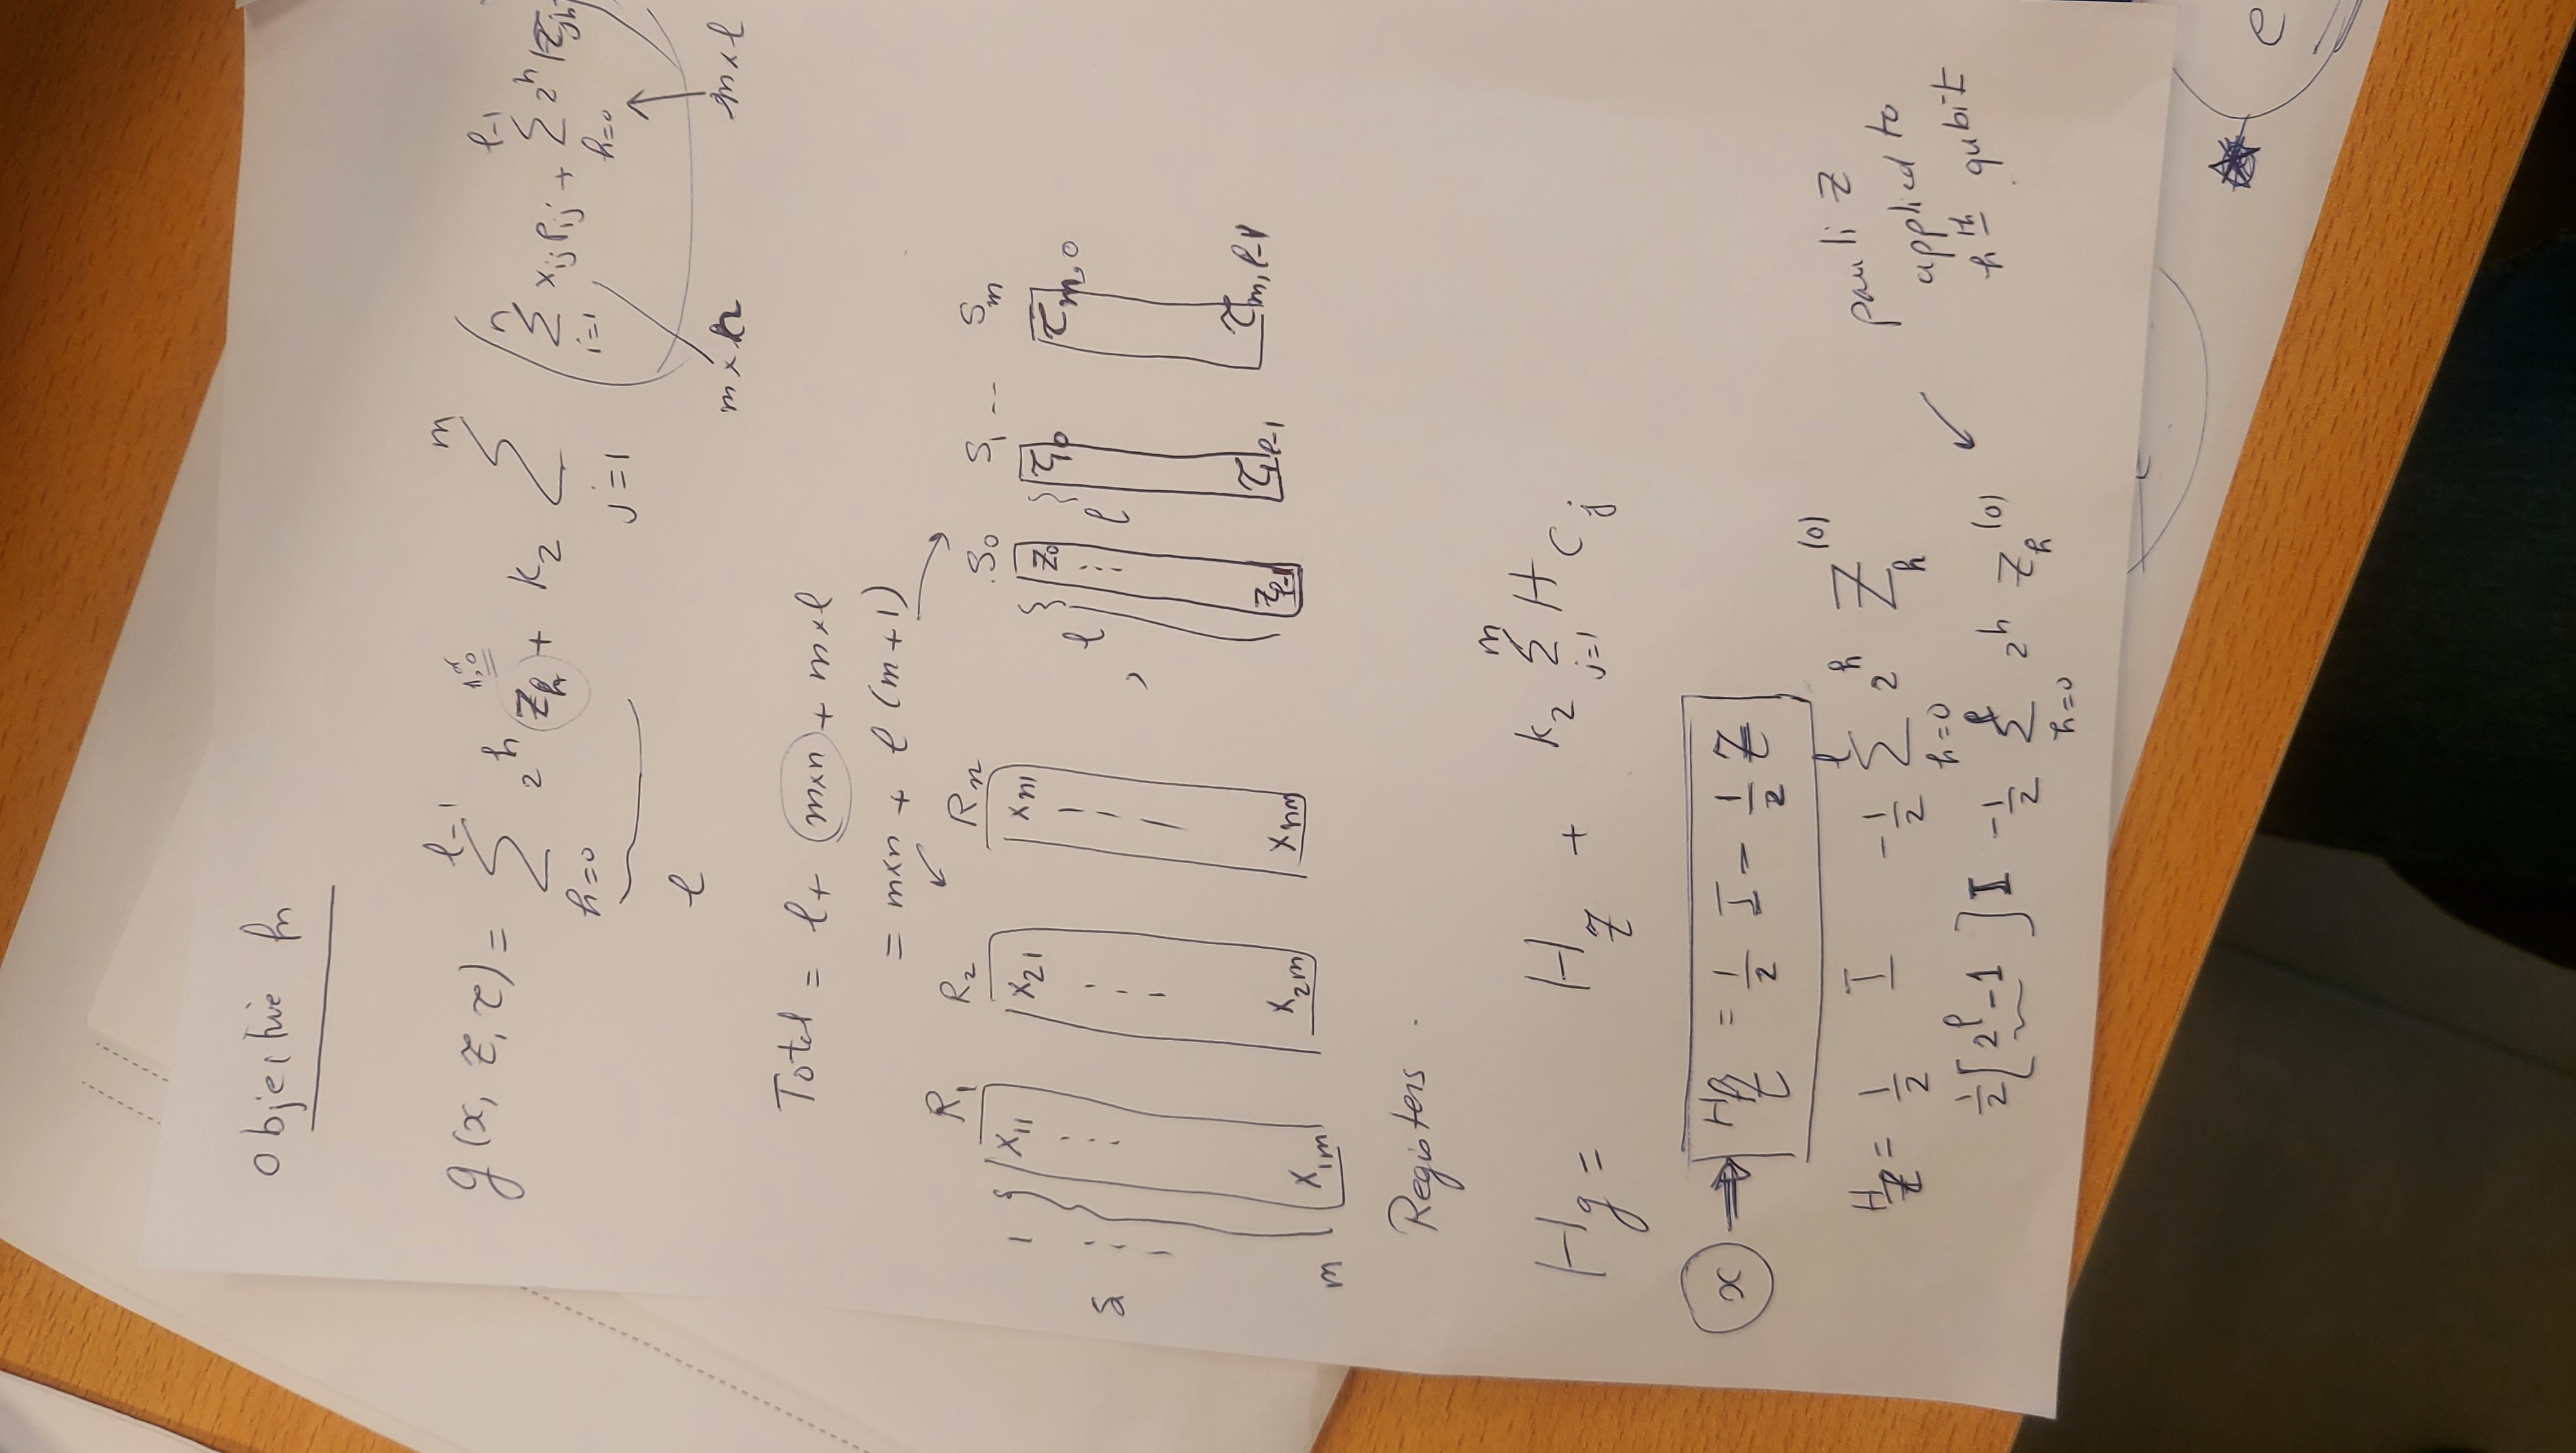 Objective fn
g(x, z, τ) = Σ_{h=0}^{l-1} 2^h z_h + k_2 Σ_{j=1}^{m} ( Σ_{i=1}^{n} x_{ij} p_{ij} + Σ_{h=0}^{l-1} 2^h τ_{jh}
l
m × n
m × l
Total = l + m×n + m×l
= m×n + l (m+1)
R_1 R_2 R_n S_0 S_1 -- S_m
1 x_{11} x_{21} x_{n1} z_0 τ_{1,0} τ_{m,0}
⋮ ⋮ ⋮ ⋮ , l ⋮ l
m x_{1m} x_{2m} x_{nm} z_{l-1} τ_{1,l-1} τ_{m,l-1}
Registers .
H_g = H_z + k_2 Σ_{j=1}^{m} H_{C_j}
x → = 1/2 I - 1/2 Z
H_z = 1/2 I -1/2 Σ_{h=0}^{l} 2^h Z_h^{(0)}
1/2 [2^l - 1] I -1/2 Σ_{h=0}^{l} 2^h Z_h^{(0)}
pauli Z
applied to
h^{th} qubit
e